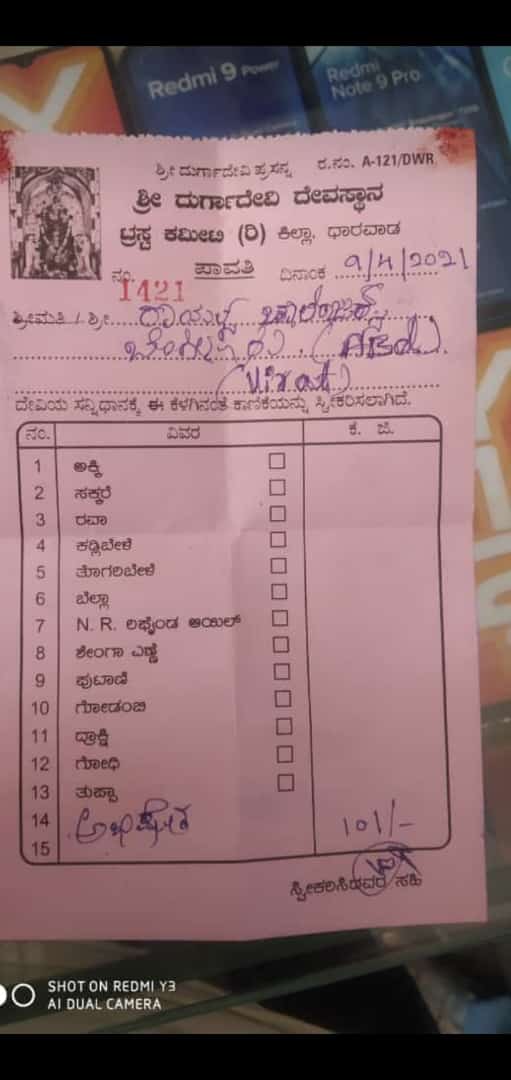 Redmi 9 Power
Redmi Note 9 Pro
ಶ್ರೀ ದುರ್ಗಾದೇವಿ ಪ್ರಸನ್ನ ರ.ನಂ. A-121/DWR
ಶ್ರೀ ದುರ್ಗಾದೇವಿ ದೇವಸ್ಥಾನ
ಟ್ರಸ್ಟ ಕಮೀಟಿ (ರಿ) ಕಿಲ್ಲಾ, ಧಾರವಾಡ
ನಂ. 1421 ಪಾವತಿ ದಿನಾಂಕ 9/4/2021
ಶ್ರೀಮತಿ / ಶ್ರೀ. ರಾಯಲ್ಸ ಚಾಲೆಂಜರ್ಸ್
ಬೆಂಗಳೂರು. (ABd).
(Virat)
ದೇವಿಯ ಸನ್ನಿಧಾನಕ್ಕೆ ಈ ಕೆಳಗಿನಂತೆ ಕಾಣಿಕೆಯನ್ನು ಸ್ವೀಕರಿಸಲಾಗಿದೆ.
ನಂ. ವಿವರ ಕೆ. ಜಿ.
1 ಅಕ್ಕಿ
2 ಸಕ್ಕರೆ
3 ರವಾ
4 ಕಡ್ಲಿಬೇಳೆ
5 ತೊಗರಿಬೇಳೆ
6 ಬೆಲ್ಲಾ
7 N. R. ಲಫೈಂಡ ಆಯಿಲ್
8 ಶೇಂಗಾ ಎಣ್ಣೆ
9 ಪುಟಾಣಿ
10 ಗೋಡಂಬಿ
11 ದ್ರಾಕ್ಷಿ
12 ಗೋಧಿ
13 ತುಪ್ಪಾ
14 ಅಭಿಷೇಕ 101/-
15
ಸ್ವೀಕರಿಸಿದವರ ಸಹಿ
SHOT ON REDMI Y3
AI DUAL CAMERA